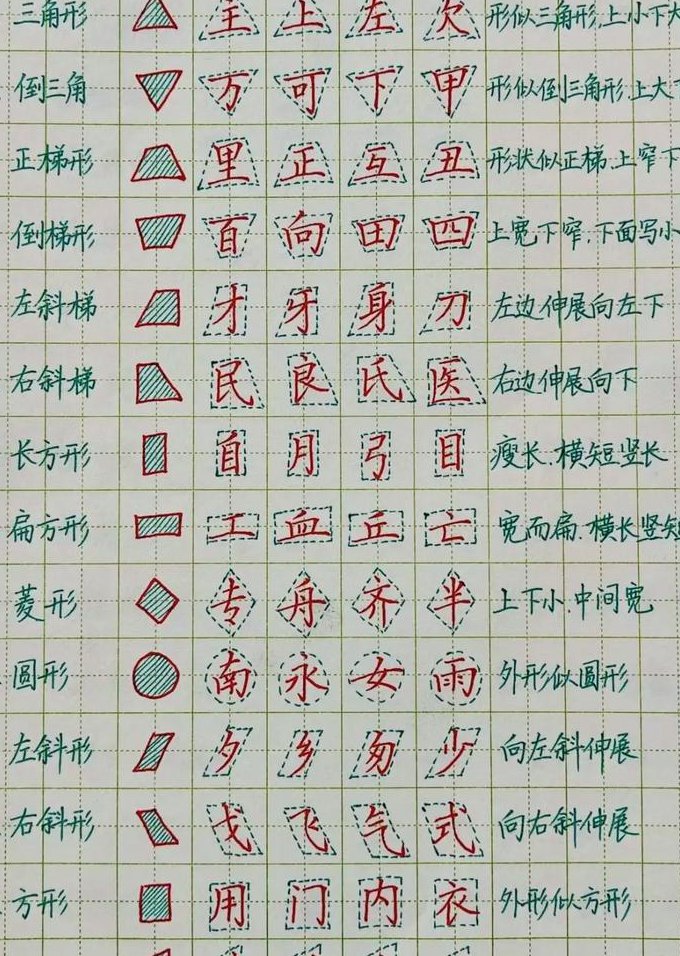 三角形 主 上 左 欠 形似三角形,上小下大
倒三角 万 可 下 甲 形似倒三角形,上大下
正梯形 里 正 互 丑 形状似正梯.上窄下
倒梯形 百 向 田 四 上宽下窄,下面写小
左斜梯 才 牙 身 刀 左边伸展向左下
右斜梯 民 良 氏 医 右边伸展向下
长方形 自 月 弓 目 瘦长.横短竖长
扁方形 工 血 丘 亡 宽而扁.横长竖短
菱形 专 舟 齐 半 上下小.中间宽
圆形 南 永 女 雨 外形似圆形
左斜形 夕 乡 匆 少 向左斜伸展
右斜形 戈 飞 气 式 向右斜伸展
方形 用 门 内 衣 外形似方形